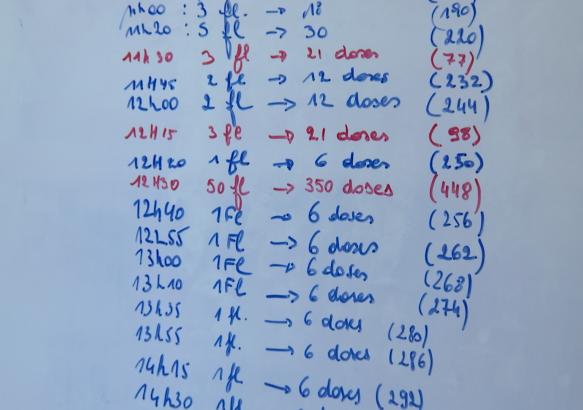 11h00 : 3 fl. → 18 (190)
11h20 : 5 fl → 30 (220)
11h30 3 fl → 21 doses (77)
11H45 2 fl → 12 doses (232)
12h00 2 fl → 12 doses (244)
12H15 3 fl → 21 doses (98)
12H20 1 fl → 6 doses (250)
12H30 50 fl → 350 doses (448)
12h40 1Fl → 6 doses (256)
12h55 1 Fl → 6 doses (262)
13h00 1Fl → 6 doses (268)
13h10 1Fl → 6 doses (274)
13h35 1 fl. → 6 doses (280)
13h55 1 fl. → 6 doses (286)
14h15 1 fl → 6 doses (292)
14h30 1fl